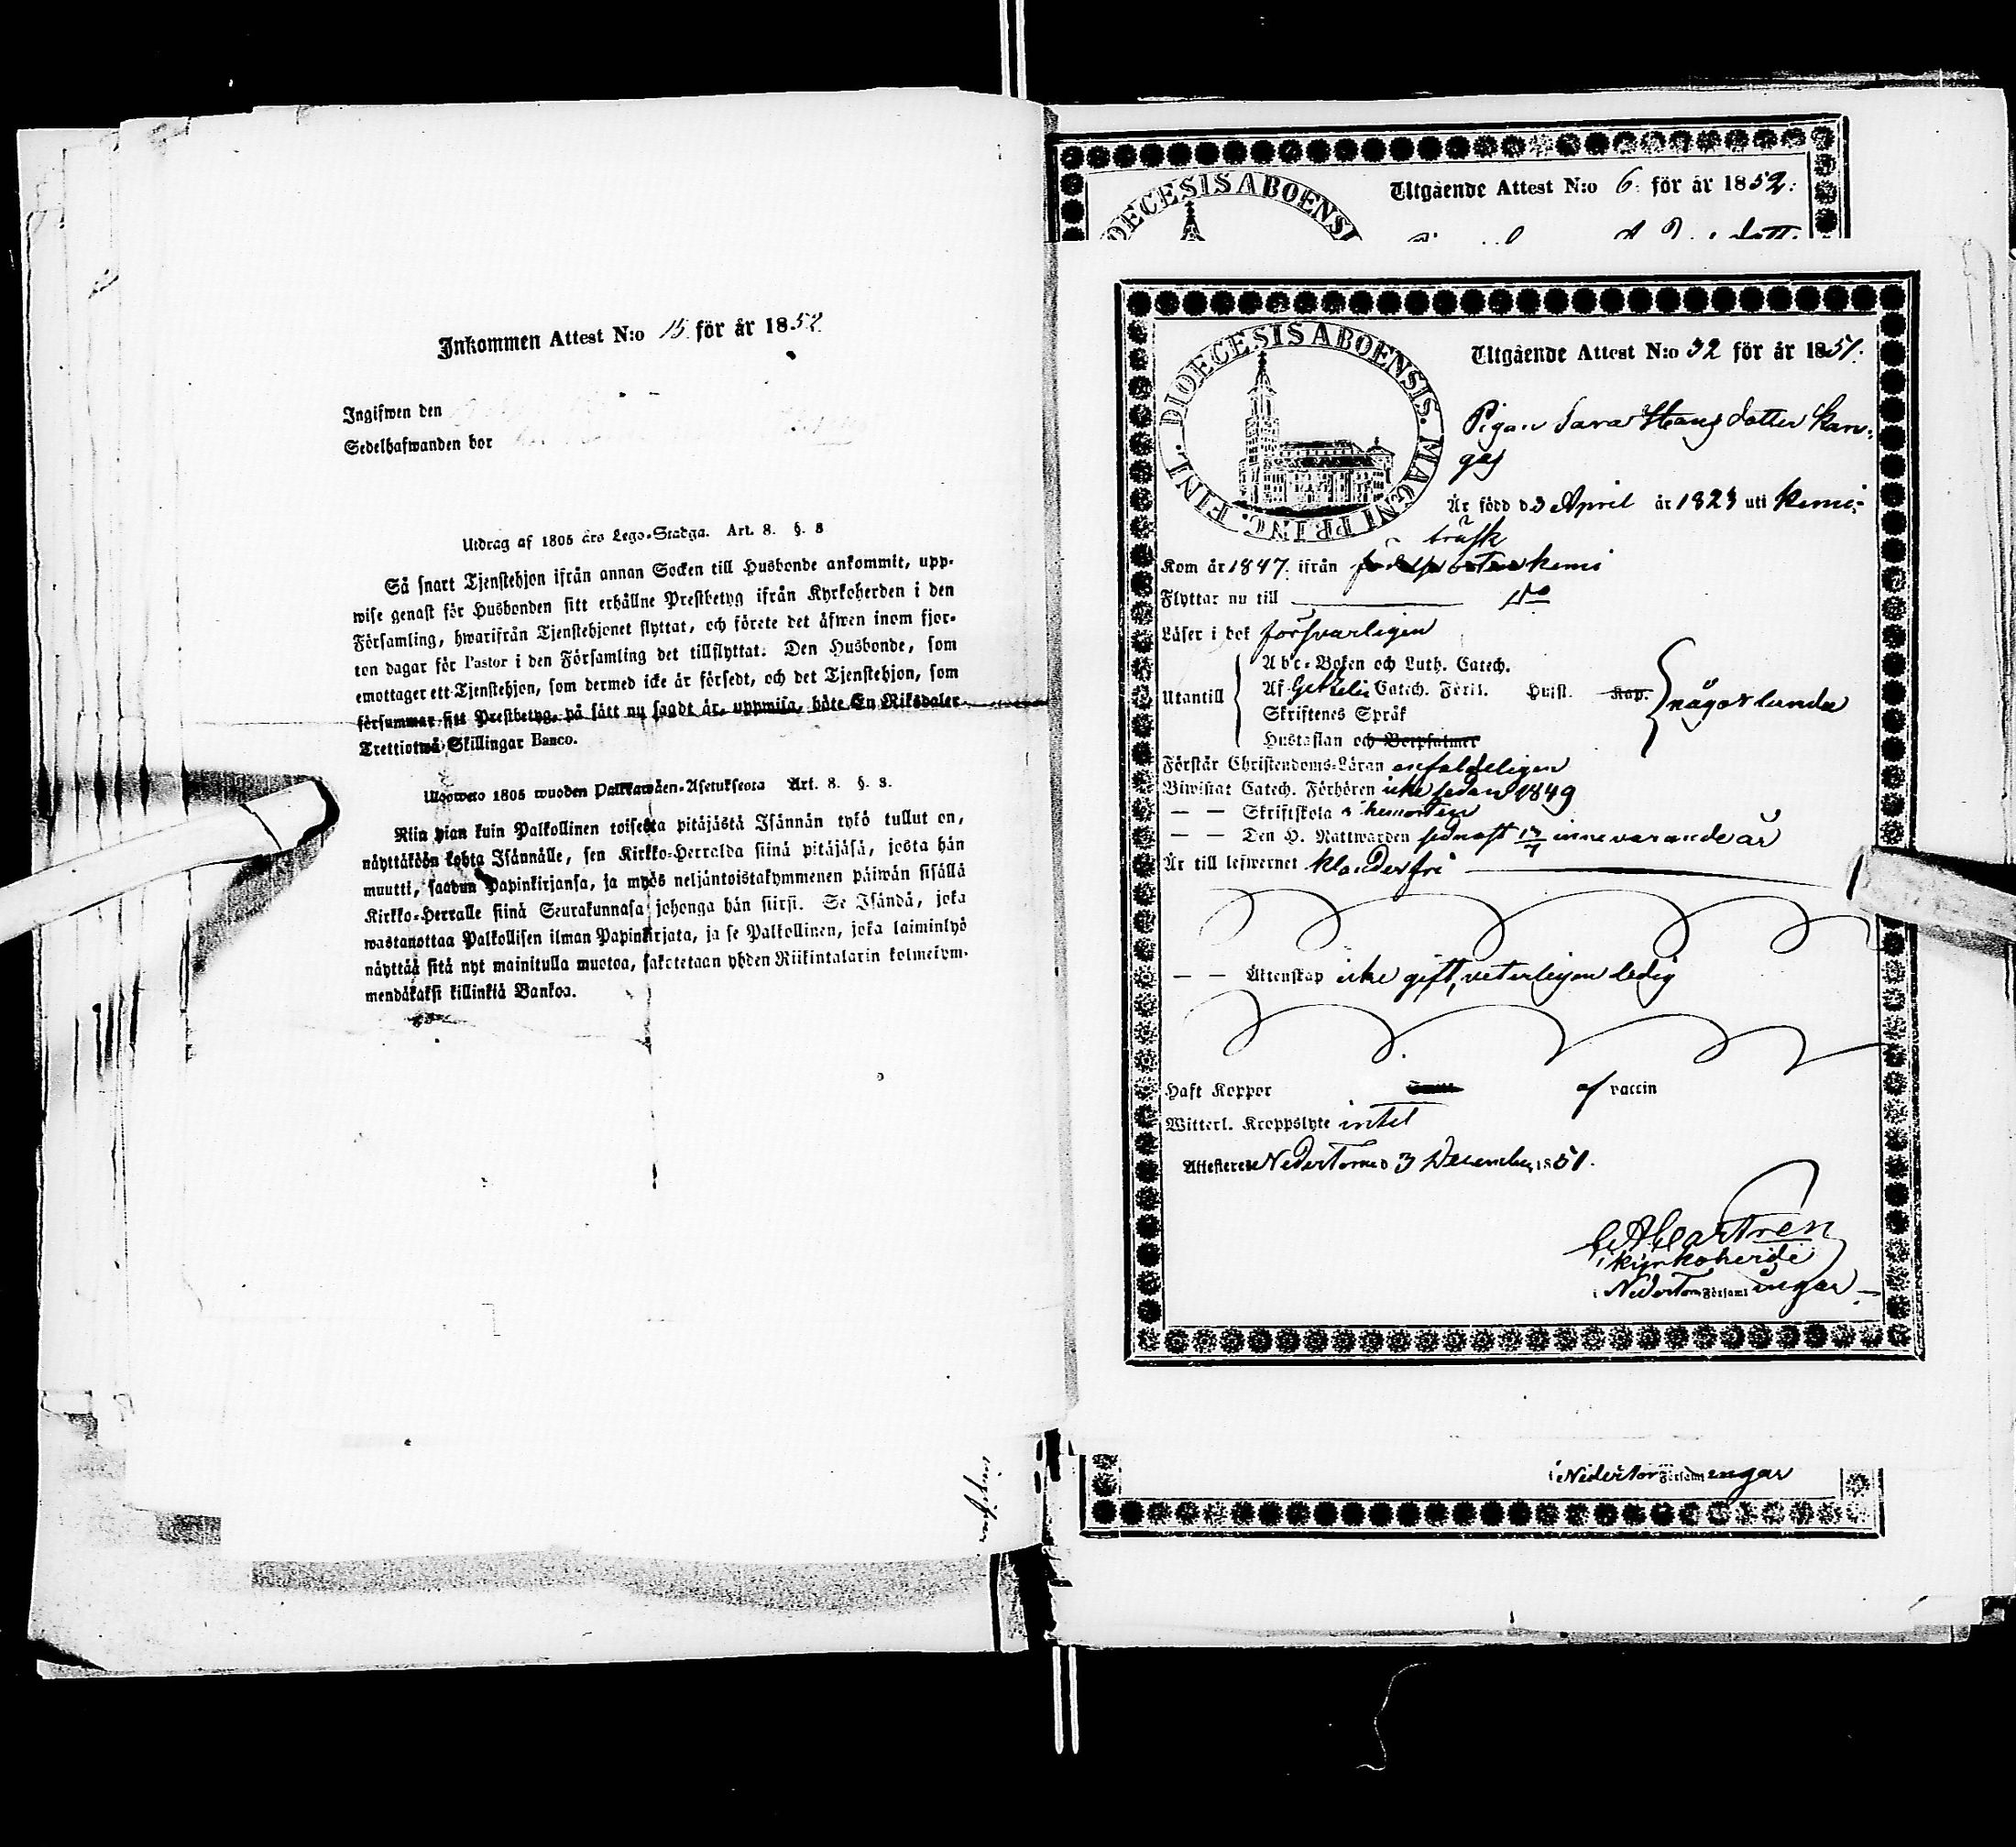 Inkommen Attest N:o 15. för år 1852
Ingifwen den
Sedelhafwanden bor
Utdrag af 1805 års Lego-Stadga. Art. 8. §. 8
Så snart Tjenstehjon ifrån annan Socken till Husbonde ankommit, upp-
wise genast för Husbonden sitt erhållne Prestbetyg ifrån Kyrkoherden i den
Församling, hwarifrån Tjenstehjonet flyttat, och förete det äfwen inom fjor-
ton dagar för Pastor i den Församling det tillflyttat. Den Husbonde, som
emottager ett Tjenstehjon, som dermed icke är försedt, och det Tjenstehjon, som
försummar sitt Prestbetyg, på sätt nu sagdt är, uppwisa, böte En Riksdaler
Trettiotwå Skillingar Banco.
Ulosweto 1805 wuoden Palkkawäen-Asetuksesta Art. 8. §. 8.
Niin pian kuin Palkollinen toisesta pitäjästä Isännän tykö tullut on,
näyttäköön kohta Isännälle, sen Kirkko-Herralda siinä pitäjäsä, josta hän
muutti, saadun Papinkirjansa, ja myös neljäntoistakymmenen päiwän sisällä
Kirkko-Herralle siinä Seurakunnasa johonga hän siirsi. Se Isändä, joka
wastanottaa Palkollisen ilman Papinkirjata, ja se Palkollinen, joka laiminlyö
näyttää sitä nyt mainitulla muotoa, sakotetaan yhden Riikintalarin kolmekym-
mendäkaksi killinkiä Bankoa.
Utgående Attest N:o 6. för år 1852.
DIOECESIS ABOENSI
Utgående Attest N:o 32 för år 1851.
DIOECESIS ABOENSIS. MAGNI PRINC. FINL.
Pigan Sara Hansdotter Kan-
gas
Är född d 3 April år 1823 uti Kemi-
träsk
Kom år 1847. ifrån Kemi
Flyttar nu till do
Läser i bok försvarligen
Utantill
Abc-Boken och Luth. Catech.
Af Gezelii Catech. Förkl. Hufl. Kap. någorlunda
Skriftenes Språk
Hustaflan och Botpsalmer
Förstår Christendoms-Läran enfaldeligen
Biwistat Catech. Förhören icke sedan 1849
— — Skriftskola i hemorten
— — Den H. Nattwarden sednast 13/7 innevarande år
Är till lefwernet klanderfri
— — Äktenskap icke gift, veterligen ledig
Haft Koppor af vaccin
Witterl. Kroppslyte intet
Attesteras Nedertorneå 3 December 1851.
Castrén
kyrkoherde
i Nedertorn Församl ingar
i Nedertor Församl ingar